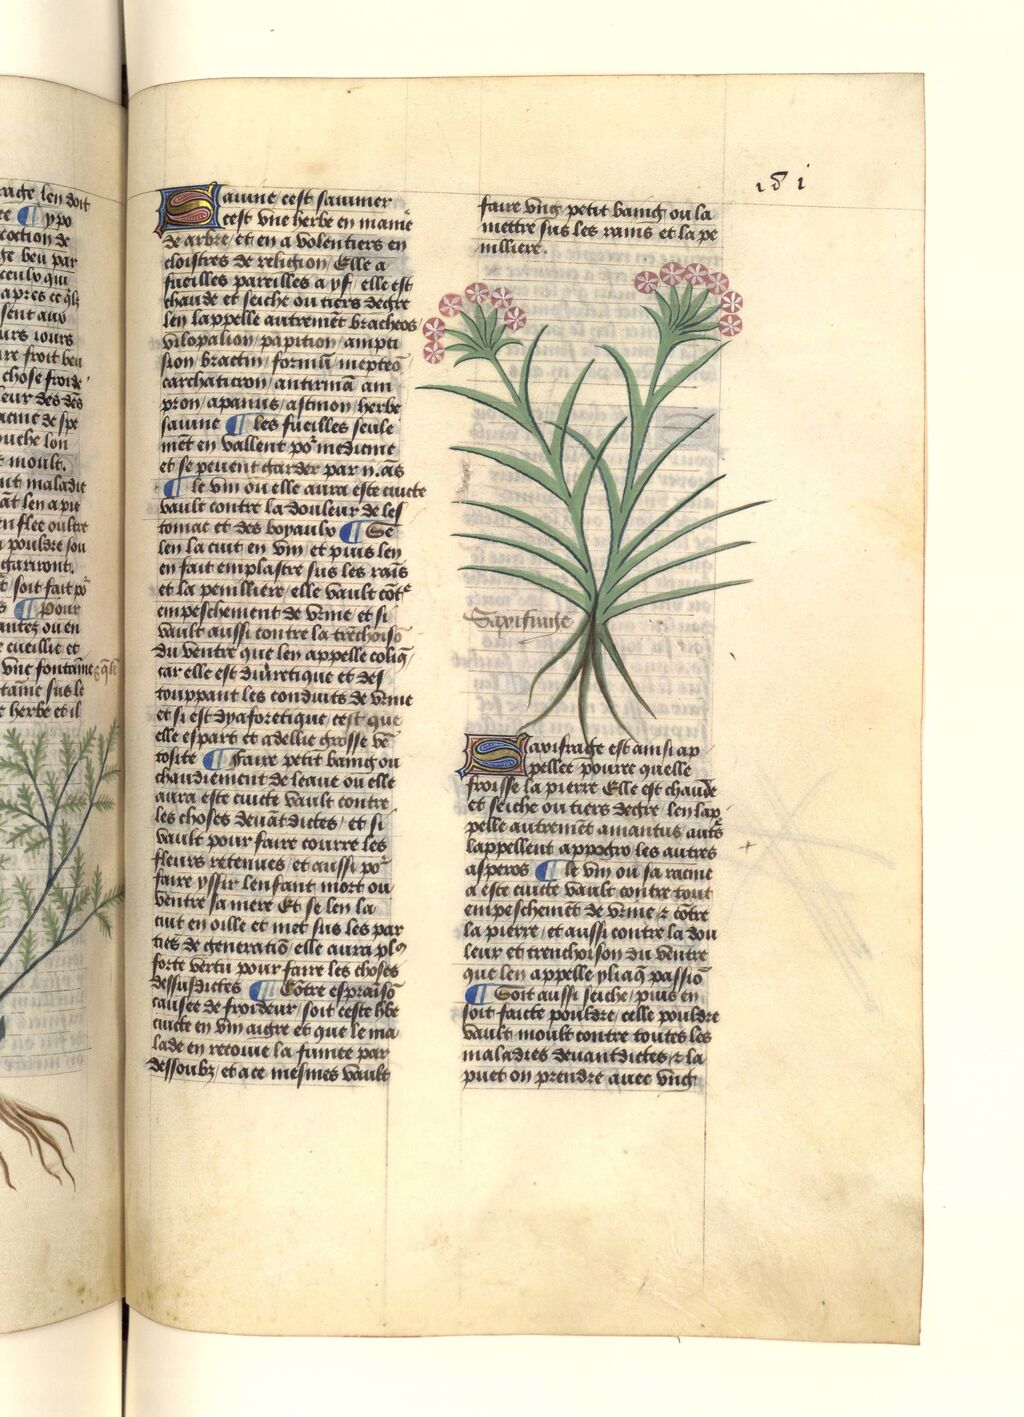 rage len doit
ypo
coction de
ge beu par
ceulx qui
apres ce qͥlz
sent aux
urs iours
re froit beu
chose froide
eur des dēs
acine de spe
uche lon
moult.
nt maladie
pouldre sou
gariront.
soit fait poͬ
Pour
antez ou en
cueillie et
vne fontaine
taine sus le
herbe et il
181
Savine cest savinier
cest vne herbe en manie
de arbre / et en a volentiers en
cloistres de religion / Elle a
fueilles pareilles a yf / elle est
chaude et seiche ou tiers degre
len lappelle autrement bracheos /
vilopalion / papition / ampti
sion / bractin / formū / mepteō
carchaticon / antirmā am
pron / apanus / astmon / herbe
savine ¶ les fueilles seule
mēt en vallent poͬ medicine
et se peuent garder par .ii. ās
¶ le vin ou elle aura este cuicte
vault contre la douleur de les
tomac et des boyaulx ¶ Se
len la cuit en vin / et puis len
en fait emplastre sus les rains
et la penilliere / elle vault cōtͤ
empeschement de vrine / et si
vault aussi contre la trēchoisō
du ventre que len appelle coliq̄ /
car elle est diuretique et des
touppant les conduits de vrine
et si est dyaforetique / cest que
elle espart et adellie grosse vē
tosite ¶ Faire petit baing ou
chaudiement de leaue ou elle
aura este cuicte vault contre
les choses deuāt dictes / et si
vault pour faire courre les
fleurs retenues / et aussi poͬ
faire yssir lenfant mort ou
ventre sa mere Et se len la
cuit en oille et met sus les par
ties de generatiō / elle aura plꝰ
forte vertu pour faire les choses
dessusdictes ¶ Cōtre espraisō
causee de froideur / soit ceste hbe
cuicte en vin aigre et que le ma
lade en recoiue la fumee par
dessoubz / et a ce mesmes vault
faire vng petit baing ou la
mettre sus les rains et la pe
nilliere.
Saxifraige
Saxifrage est ainsi ap
pellee pource quelle
froisse la pierre Elle est chaude
et seiche ou tiers degre / len lap
pelle autremēt amantus / autͬs
lappellent appogro les autres
asperos ¶ le vin ou sa racine
a este cuicte vault contre tout
empeschemēt de vrine / ⁊ cōtre
la pierre / et aussi contre la dou
leur et trenchoison du ventre
que len appelle yliaq̄ passiō
¶ Soit aussi seiche / puis en
soit faicte pouldre / celle pouldre
vault moult contre toutes les
maladies deuantdictes / ⁊ la
puet on prendre auec vng